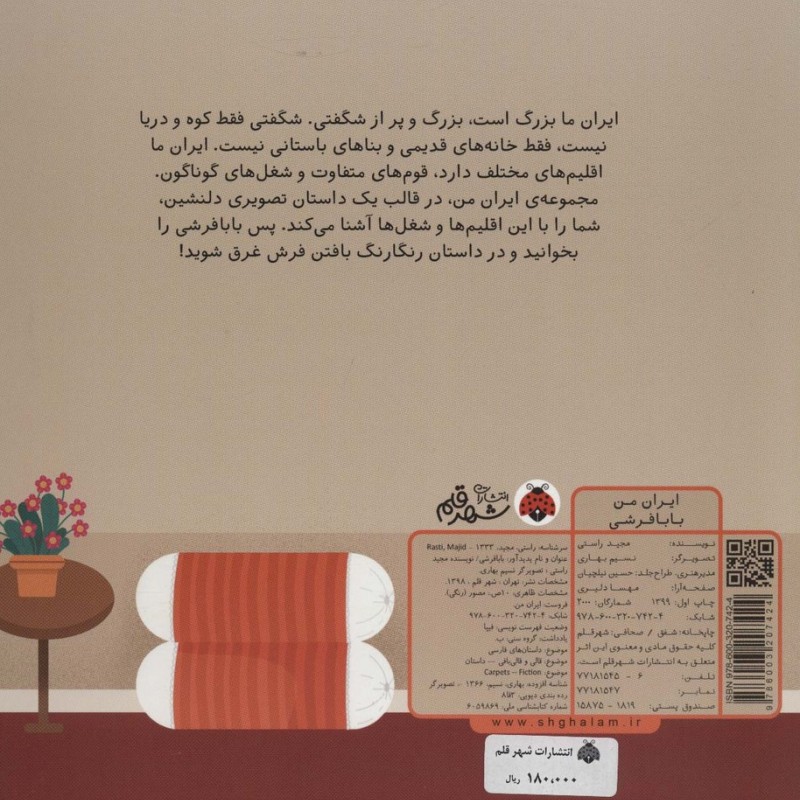 ایران ما بزرگ است، بزرگ و پر از شگفتی. شگفتی فقط کوه و دریا
نیست، فقط خانه‌های قدیمی و بناهای باستانی نیست. ایران ما
اقلیم‌های مختلف دارد، قوم‌های متفاوت و شغل‌های گوناگون.
مجموعه‌ی ایران من، در قالب یک داستان تصویری دلنشین،
شما را با این اقلیم‌ها و شغل‌ها آشنا می‌کند. پس بابافرشی را
بخوانید و در داستان رنگارنگ بافتن فرش غرق شوید!
انتشارات
شهر قلم
ایران من
بابافرشی
نویسنده: مجید راستی
تصویرگر: نسیم بهاری
مدیرهنری، طراح‌جلد: حسین نیلچیان
صفحه‌آرا: مهسا دلیری
چاپ اول: ۱۳۹۹ شمارگان: ۲۰۰۰
شابک: ۹۷۸-۶۰۰-۳۲۰-۷۴۲-۴
چاپخانه: شفق / صحافی: شهرقلم
کلیه حقوق مادی و معنوی این اثر
متعلق به انتشارات شهرقلم است.
تلفن: ۶ - ۷۷۱۸۱۵۴۵
نمابر: ۷۷۱۸۱۵۴۷
صندوق پستی: ۱۸۱۹ - ۱۵۸۷۵
سرشناسه: راستی، مجید، ۱۳۳۳ - Rasti, Majid
عنوان و نام پدیدآور: بابافرشی/ نویسنده مجید
راستی ؛ تصویرگر نسیم بهاری.
مشخصات نشر: تهران : شهر قلم ، ۱۳۹۸.
مشخصات ظاهری: ۱۰ص.: مصور (رنگی).
فروست: ایران من.
شابک: ۹۷۸-۶۰۰-۳۲۰-۷۴۲-۴
وضعیت فهرست نویسی: فیپا
یادداشت: گروه سنی: ب.
موضوع: داستان‌های فارسی
موضوع: قالی و قالی‌بافی -- داستان
موضوع: Carpets -- Fiction
شناسه افزوده: بهاری، نسیم، ۱۳۶۶ - تصویرگر
رده بندی دیویی:
شماره کتابشناسی ملی: ۶۰۵۹۸۶۹
ISBN 978-600-320-742-4
9786003207424
www.shghalam.ir
انتشارات شهر قلم
۱۸۰,۰۰۰ ریال